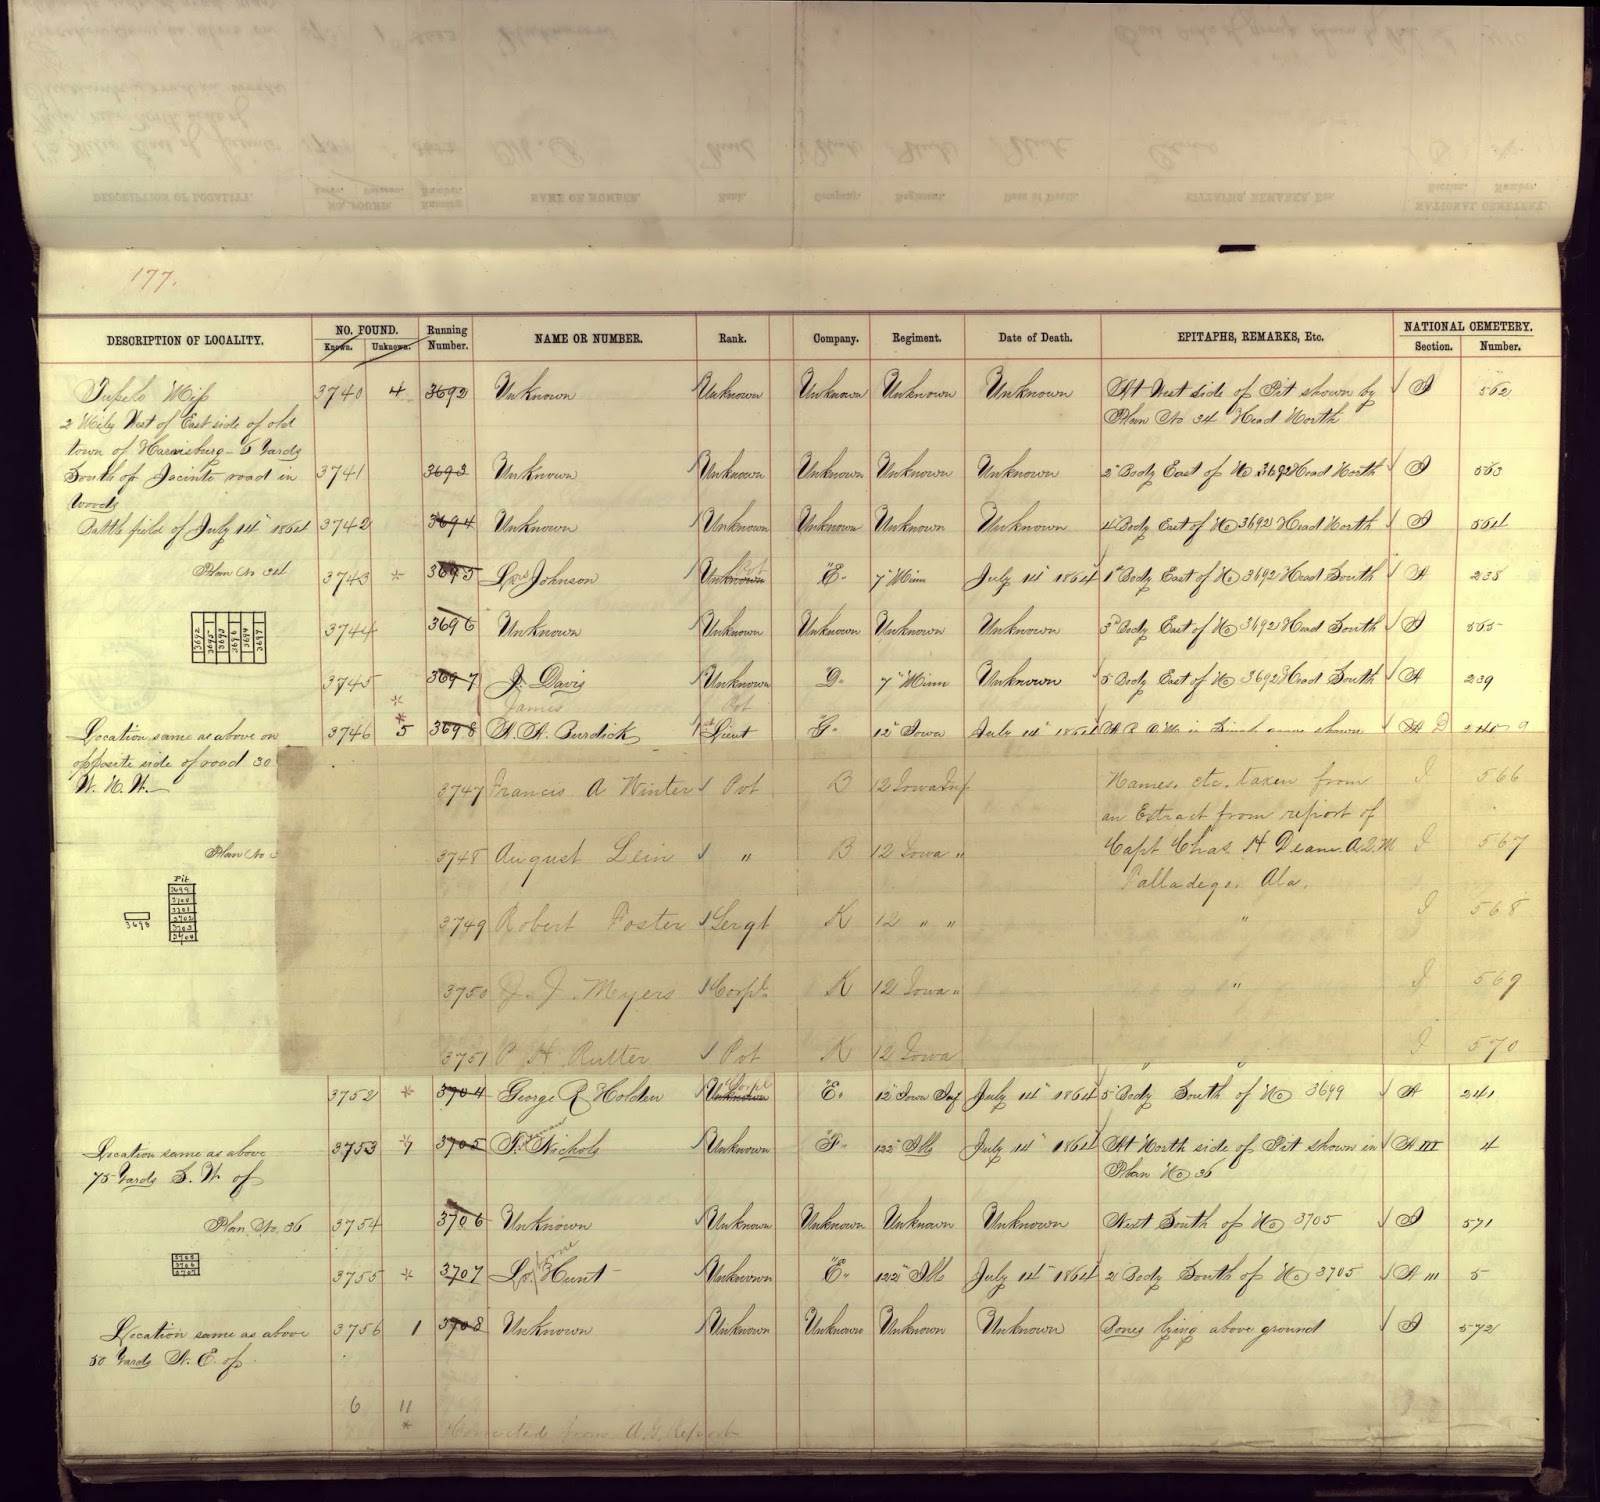 177.
DESCRIPTION OF LOCALITY. NO. FOUND. Known. Unknown. Running Number. NAME OR NUMBER. Rank. Company. Regiment. Date of Death. EPITAPHS, REMARKS, Etc. NATIONAL CEMETERY. Section. Number.
Tupelo Miss
2 Miles West of East side of old
town of Harrisburg - 6 Yards
South of Jacinto road in
Woods
Battle field of July 14" 1864
Plan No 34
3692 3695 3693 3696 3694 3697
3740 4 3692 Unknown Unknown Unknown Unknown Unknown At West side of Pit shown by
Plan No 34 Head North
562
3741 3693 Unknown Unknown Unknown Unknown Unknown 2" Body East of No 3692 Head North 563
3742 3694 Unknown Unknown Unknown Unknown Unknown 4" Body East of No 3692 Head North 564
3743 * 3695 Johnson Unknown Pvt "E" 7" Minn July 14" 1864 1" Body East of No 3692 Head South A 238
3744 3696 Unknown Unknown Unknown Unknown Unknown 3" Body East of No 3692 Head South 565
3745 * 3697 J. Davis Unknown "D" 7" Minn Unknown 5 Body East of No 3692 Head South A 239
James Pvt
Location same as above on
opposite side of road 30
Plan No
3698
Pit
3699
3746 * 5 3698 A. A. Burdick Lieut "G" 12" Iowa July 14" 1864
3747 Francis A Winter Pvt B 12 Iowa Inf Names, etc. taken from
an Extract from report of
Capt Chas. H Deane A.Q.M
Talladega, Ala.
I 566
3748 August Lein " B 12 Iowa " I 567
3749 Robert Foster Sergt K 12 " " " I 568
3750 J. J. Myers Corpl. K 12 Iowa " " I 569
3751 P H Rutter Pvt K 12 Iowa " " I 570
3752 * 3704 George R Holden Unknown Corpl "E" 12" Iowa Inf July 14" 1864 5" Body South of No 3699 A 241
Location same as above
75 Yards S. W. of
Plan No. 36
3705
3706
3707
3753 * 3705 T. Nichols Unknown "F" 122" Ills July 14" 1864 At North side of Pit shown in
Plan No 36
A III 4
3754 3706 Unknown Unknown Unknown Unknown Unknown Next South of No 3705 571
3755 * 3707 Hunt Unknown "E" 122" Ills July 14" 1864 2 Body South of No 3705 A III 5
Location same as above
50 Yards N. E. of
3756 1 3708 Unknown Unknown Unknown Unknown Unknown Bones lying above ground 572
6 11
* Corrected from A.G. Report